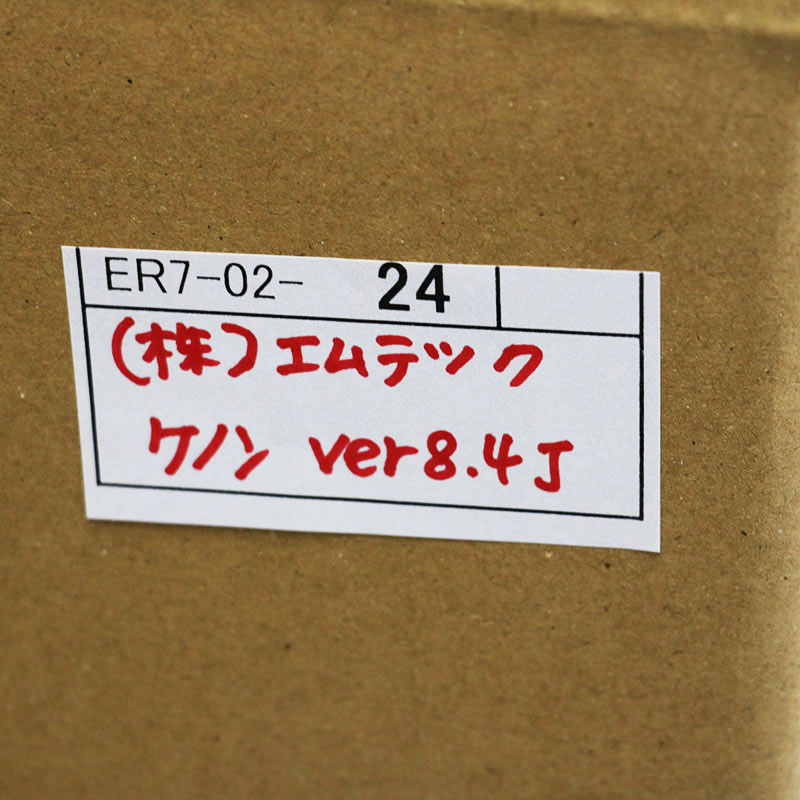 ER7-02- 24
(株)エムテック
ケノン ver8.4J